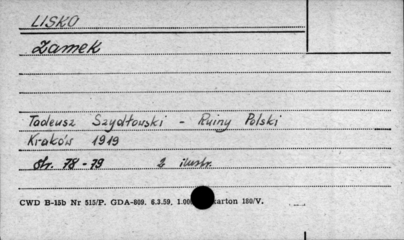 LISKO
Zamek
Tadeusz Szydłowski - Ruiny Polski
Kraków 1919
str. 78-79 2 ilustr.
CWD B-15b Nr 515/P. GDA-809. 6.3.59. 1.00 karton 180/V.